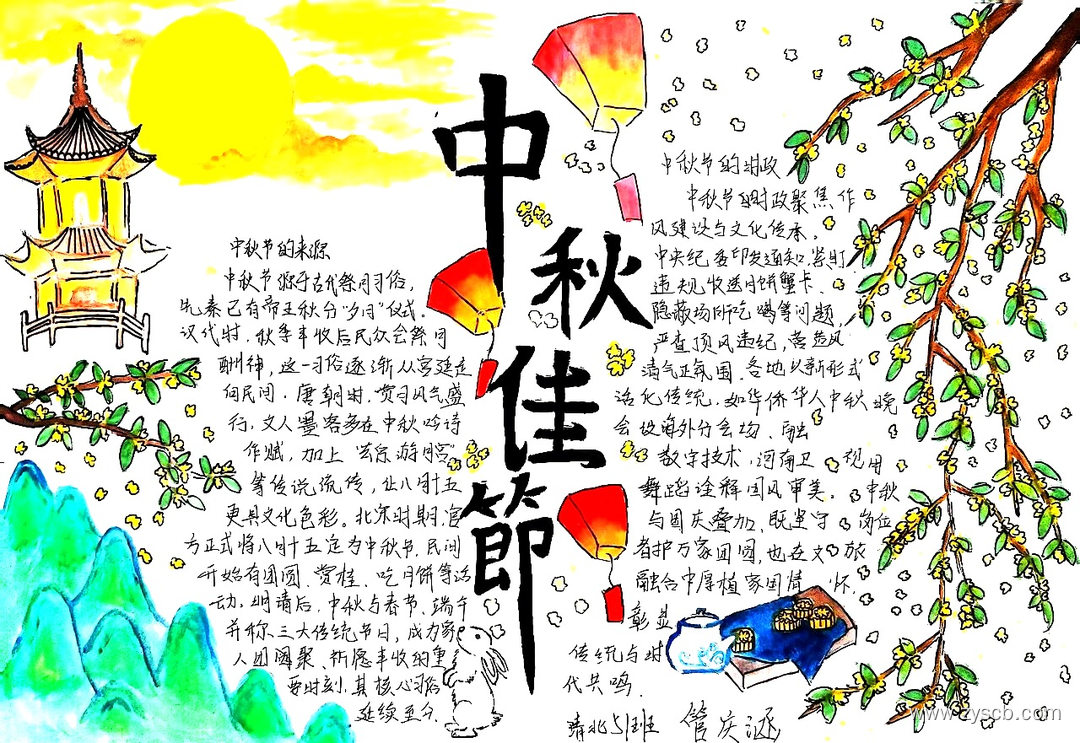 中秋佳節
中秋节的来源
中秋节源于古代祭月习俗,
先秦已有帝王秋分“夕月”仪式。
汉代时,秋季丰收后民众会祭月
酬神,这一习俗逐渐从宫廷走
向民间。唐朝时,赏月风气盛
行,文人墨客多在中秋吟诗
作赋,加上“玄宗游月宫”
等传说流传,让八月十五
更具文化色彩。北宋时期,官
方正式将八月十五定为中秋节,民间
开始有团圆、赏桂、吃月饼等活
动。明清后,中秋与春节、端午
并称三大传统节日,成为家
人团圆聚、祈愿丰收的重
要时刻,其核心习俗
延续至今.
中秋节的时政
中秋节的时政聚焦作
风建设与文化传承。
中央纪委印发通知,紧盯
违规收送月饼蟹卡、
隐蔽场所吃喝等问题,
严查顶风违纪,营造风
清气正氛围.各地以新形式
活化传统,如华侨华人中秋晚
会设海外分会场、融
数字技术,河南卫视用
舞蹈诠释国风审美。中秋
与国庆叠加,既坚守岗位
者护万家团圆,也在文旅
融合中厚植家国情怀,
彰显
传统与时
代共鸣.
靖北51班 管庆涵
www.zyscb.com